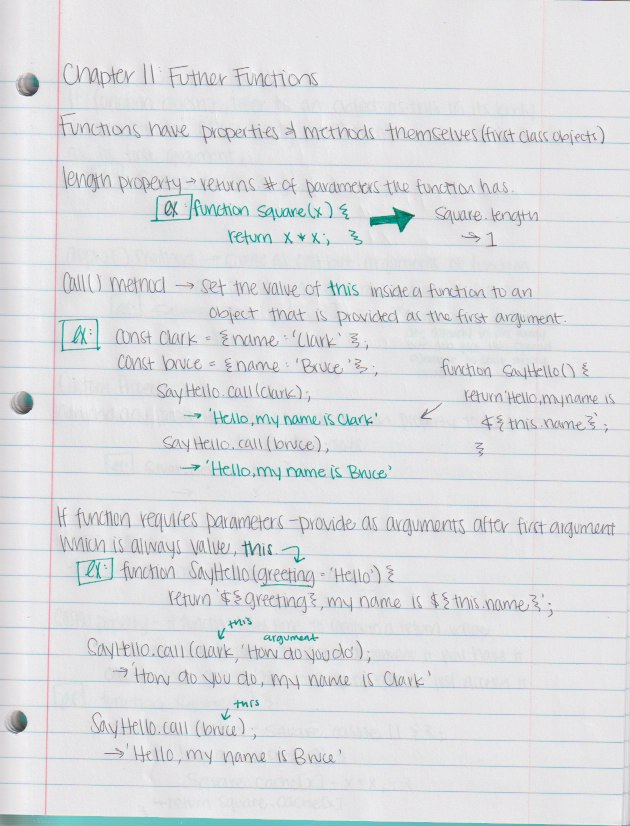 Chapter 11: Futher Functions
Functions have properties & methods themselves (first class objects)
length property → returns # of parameters the function has.
ex: function square(x) {
return x * x; }
square.length
→ 1
Call() method → set the value of this inside a function to an
object that is provided as the first argument.
ex: const clark = {name: 'Clark' };
const bruce = {name: 'Bruce' };
SayHello.call(clark);
→ 'Hello, my name is Clark'
SayHello.call(bruce);
→ 'Hello, my name is Bruce'
function SayHello() {
return 'Hello, my name is
${this.name}';
}
If function requires parameters - provide as arguments after first argument
which is always value, this.
ex: function SayHello(greeting = 'Hello') {
return '${greeting}, my name is ${this.name}';
this
argument
SayHello.call(clark, 'How do you do');
→ 'How do you do, my name is Clark'
this
SayHello.call(bruce);
→ 'Hello, my name is Bruce'